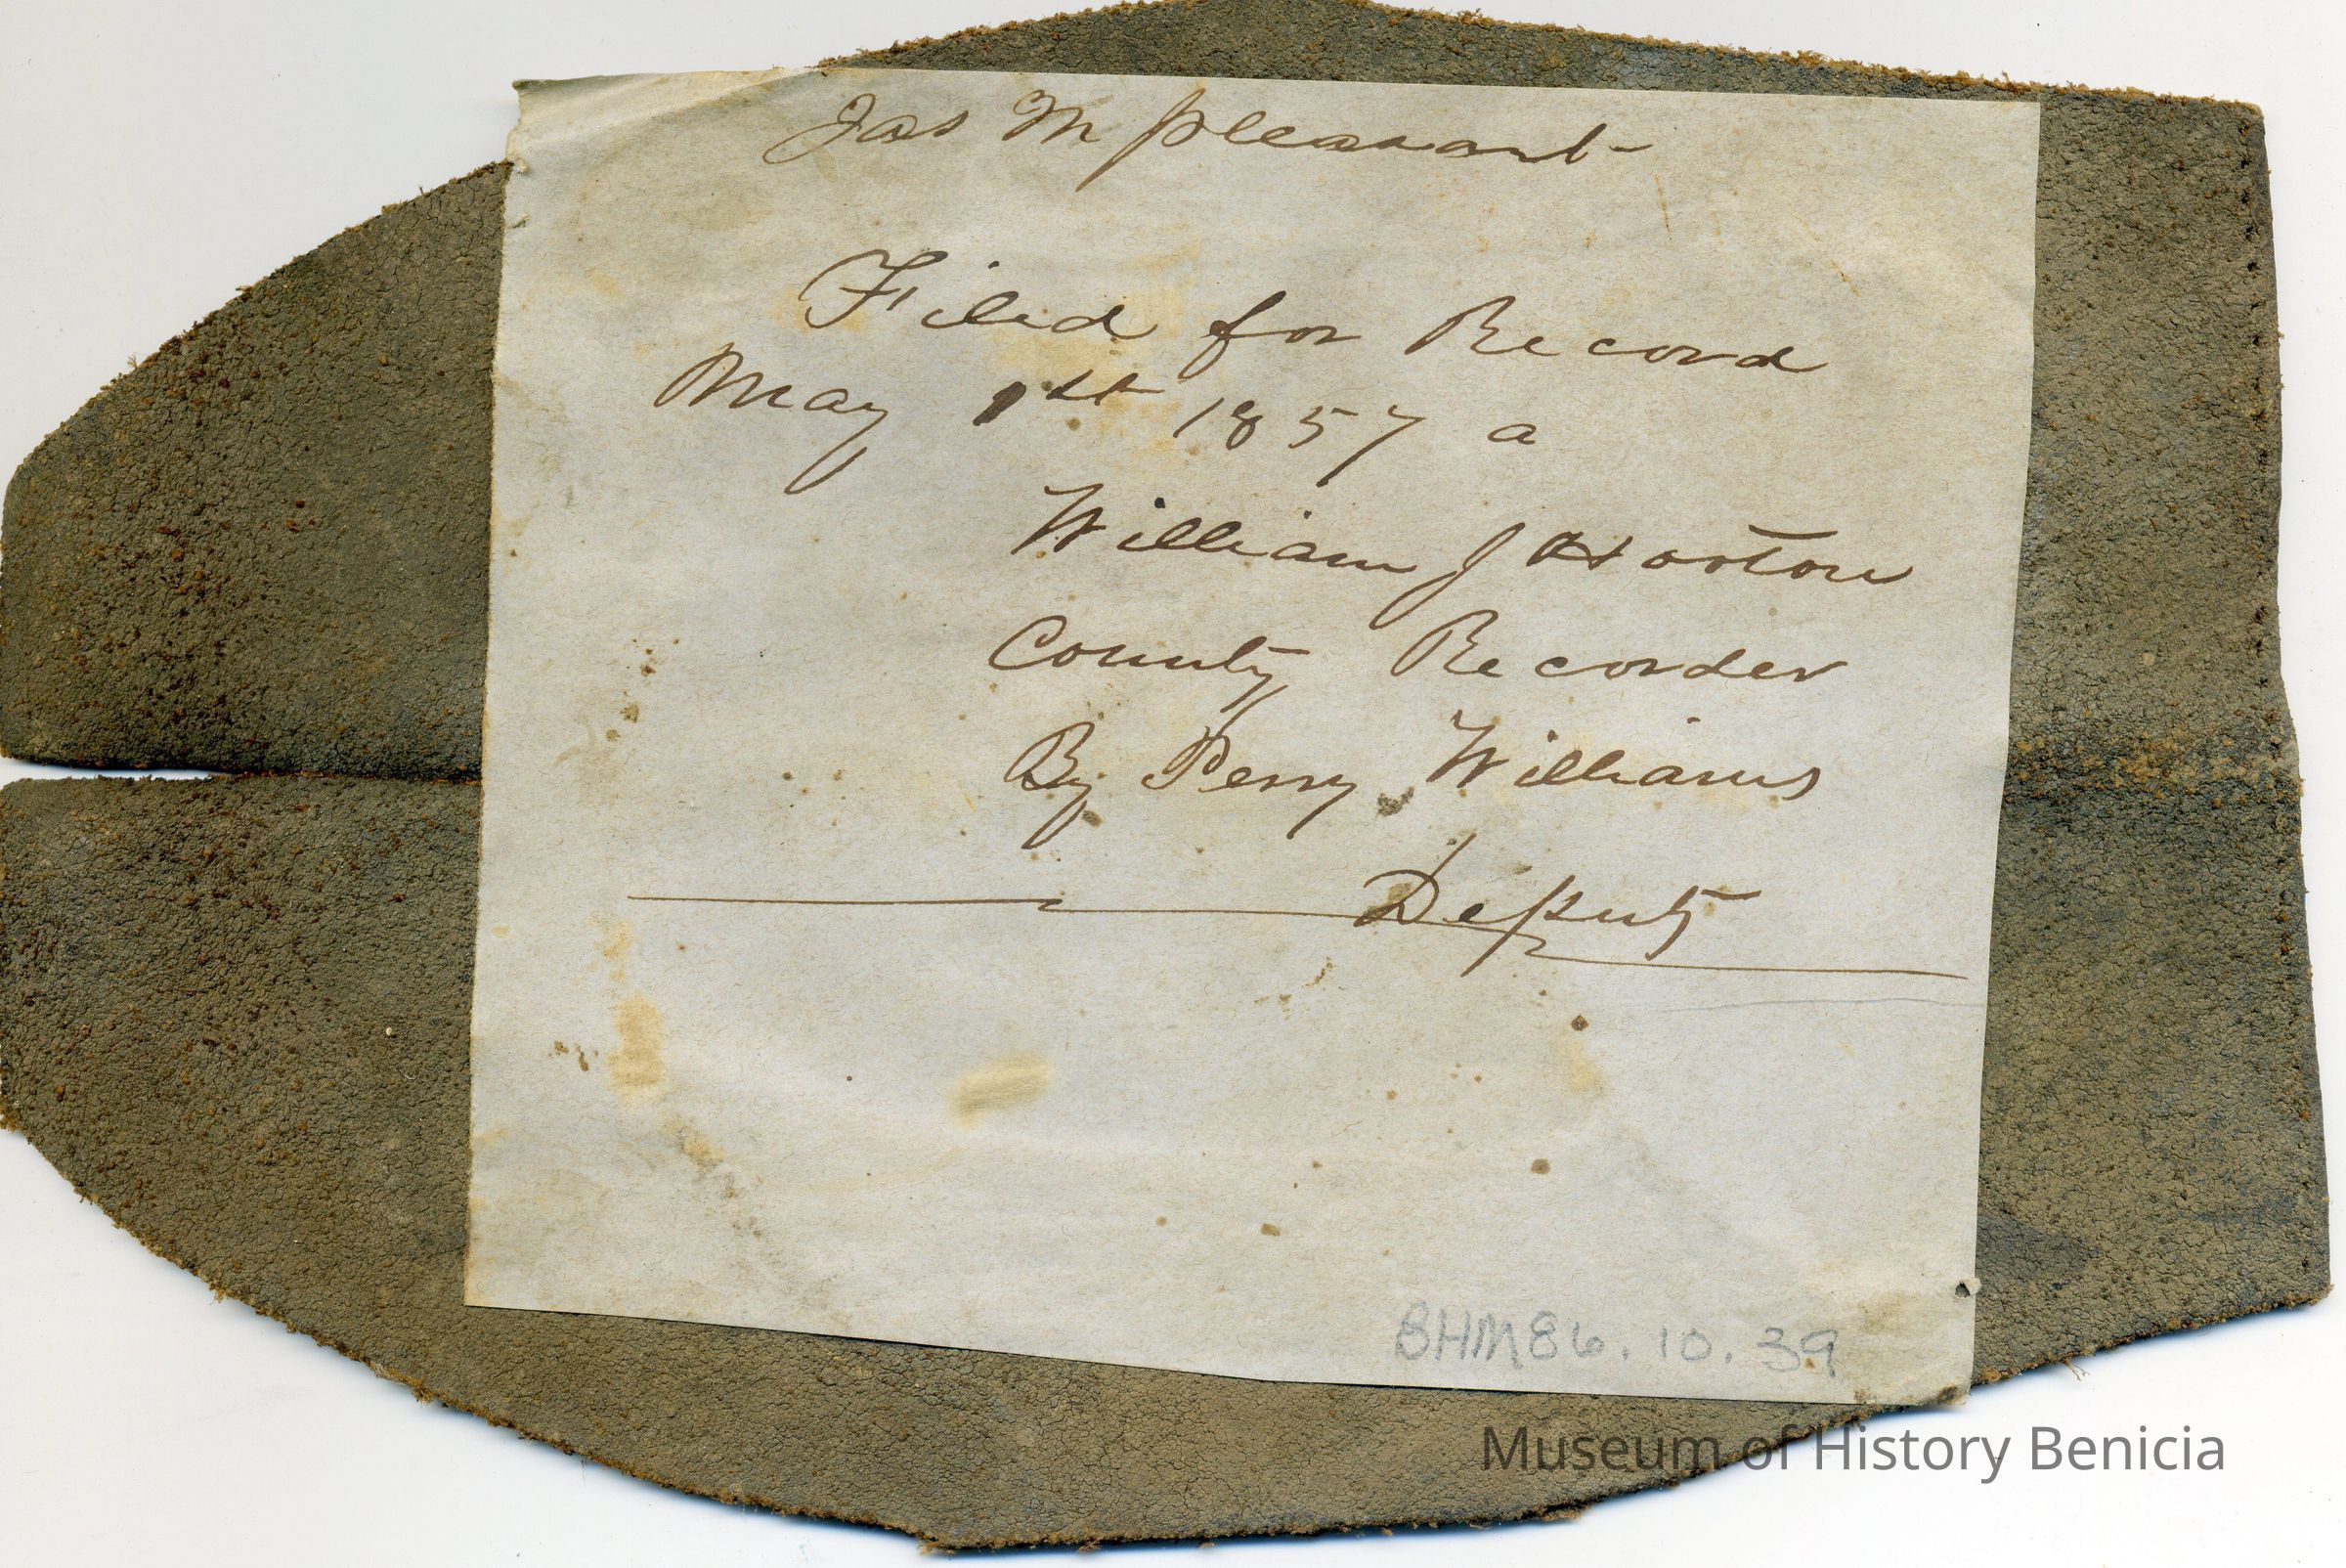 Jas M Pleasant
Filed for Record
May 1st 1857 a
William J Hooton
County Recorder
By Perry Williams
Deputy
BHM86.10.39
Museum of History Benicia